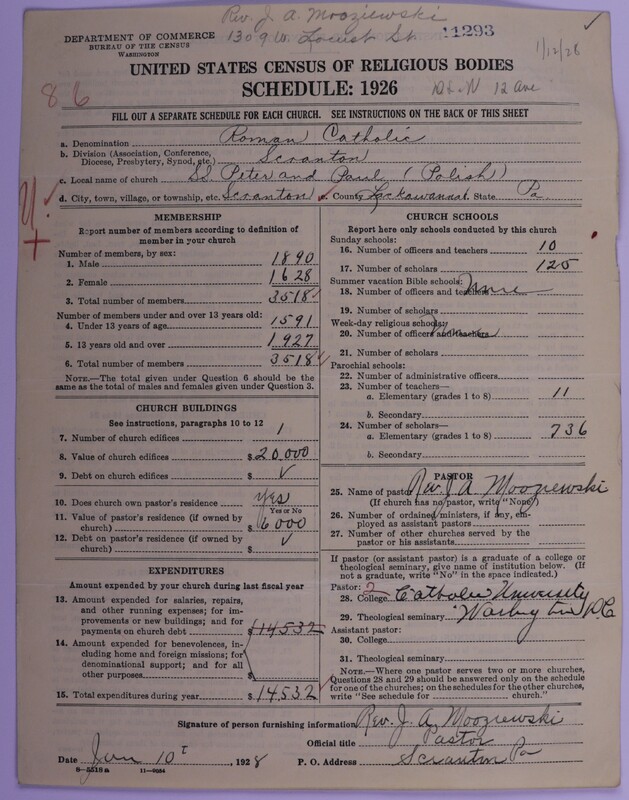 Rev. J. A. Mooziewski
1309 W. Locust St.
11293
DEPARTMENT OF COMMERCE
BUREAU OF THE CENSUS
WASHINGTON
1/12/28
UNITED STATES CENSUS OF RELIGIOUS BODIES
SCHEDULE: 1926
12 Ave
86
FILL OUT A SEPARATE SCHEDULE FOR EACH CHURCH. SEE INSTRUCTIONS ON THE BACK OF THIS SHEET
a. Denomination Roman Catholic
b. Division (Association, Conference, Diocese, Presbytery, Synod, etc.) Scranton
c. Local name of church SS. Peter and Paul (Polish)
d. City, town, village, or township, etc. Scranton e. County Lackawanna f. State Pa.
MEMBERSHIP
Report number of members according to definition of
member in your church
Number of members, by sex:
1. Male 1890
2. Female 1628
3. Total number of members 3518
Number of members under and over 13 years old:
4. Under 13 years of age 1591
5. 13 years old and over 1927
6. Total number of members 3518
NOTE.—The total given under Question 6 should be
same as the total of males and females given under Question 3.
CHURCH BUILDINGS
See instructions, paragraphs 10 to 12
7. Number of church edifices 1
8. Value of church edifices $20,000
9. Debt on church edifices $ ✓
10. Does church own pastor's residence yes
Yes or No
11. Value of pastor's residence (if owned by
church) $6000
12. Debt on pastor's residence (if owned by
church) $ ✓
EXPENDITURES
Amount expended by your church during last fiscal year
13. Amount expended for salaries, repairs,
and other running expenses; for im-
provements or new buildings; and for
payments on church debt $14532
14. Amount expended for benevolences, in-
cluding home and foreign missions; for
denominational support; and for all
other purposes $
15. Total expenditures during year $14532
CHURCH SCHOOLS
Report here only schools conducted by this church
Sunday schools:
16. Number of officers and teachers 10
17. Number of scholars 125
Summer vacation Bible schools:
18. Number of officers and teachers None
19. Number of scholars
Week-day religious schools:
20. Number of officers and teachers
21. Number of scholars
Parochial schools:
22. Number of administrative officers
23. Number of teachers—
a. Elementary (grades 1 to 8) 11
b. Secondary
24. Number of scholars—
a. Elementary (grades 1 to 8) 736
b. Secondary
PASTOR
25. Name of pastor Rev. J. A. Mooziewski
(If church has no pastor, write "None")
26. Number of ordained ministers, if any, em-
ployed as assistant pastors
27. Number of other churches served by the
pastor or his assistants
If pastor (or assistant pastor) is a graduate of a college or
theological seminary, give name of institution below. (If
not a graduate, write "No" in the space indicated.)
Pastor: 2
28. College Catholic University
29. Theological seminary Washington D.C.
Assistant pastor:
30. College
31. Theological seminary
NOTE.—Where one pastor serves two or more churches,
Questions 28 and 29 should be answered only on the schedule
for one of the churches; on the schedules for the other churches,
write "See schedule for church."
Signature of person furnishing information Rev. J. A. Moozrewski
Official title Pastor
Date Jan 10th, 1928 P. O. Address Scranton Pa
8—5519a 11—9084